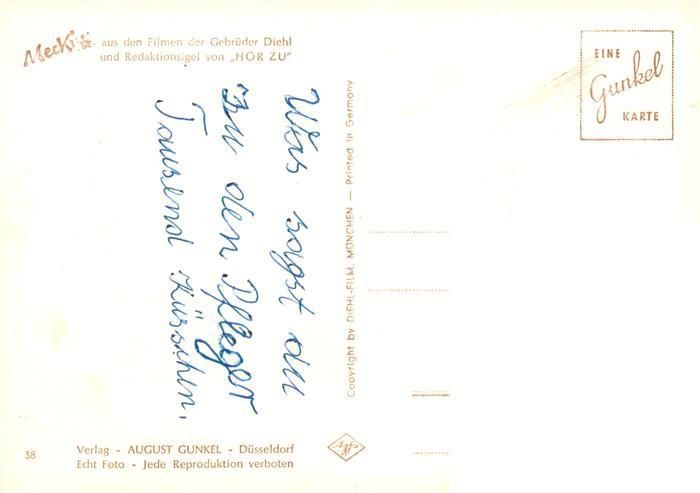 Mecki aus den Filmen der Gebrüder Diehl
und Redaktionsigel von „HÖR ZU"
EINE
Gunkel
KARTE
Was sagst du
zu den Pfleger
Tausend Küsschen.
Copyright by DIEHL-FILM, MÜNCHEN — Printed in Germany
38
Verlag - AUGUST GUNKEL - Düsseldorf
Echt Foto - Jede Reproduktion verboten
Agfa